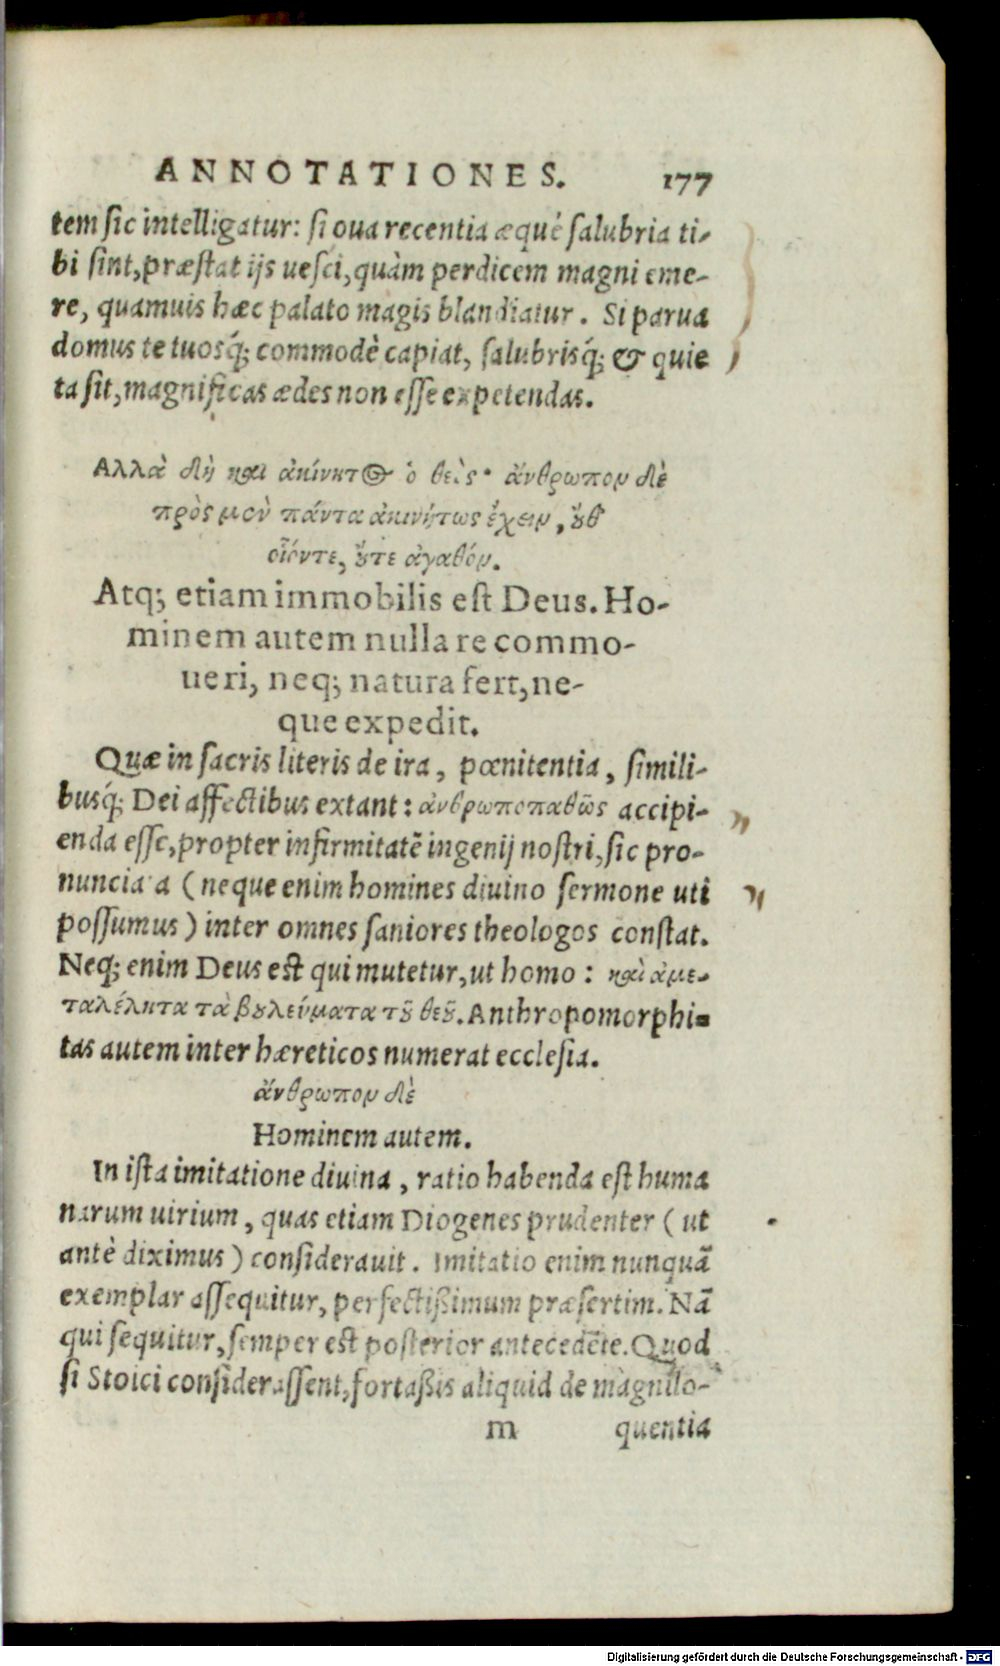 ANNOTATIONES. 177
tem sic intelligatur: si oua recentia æquè salubria ti-
bi sint, præstat ijs uesci, quàm perdicem magni eme-
re, quamuis hæc palato magis blandiatur. Si parua
domus te tuosq́; commodè capiat, salubrisq́; & quie
ta sit, magnificas ædes non esse expetendas.
Αλλὰ δὴ καὶ ἀκίνητ@ ὁ θεὸς· ἄνθρωπον δὲ
πρὸς μὲν πάντα ἀκινήτως ἔχειν, ȣ̓θ᾽
οἷόντε, ȣ̓́τε ἀγαθόν.
Atq; etiam immobilis est Deus. Ho-
minem autem nulla re commo-
ueri, neq; natura fert, ne-
que expedit.
Quæ in sacris literis de ira, pœnitentia, simili-
busq́; Dei affectibus extant: ἀνθρωποπαθῶς accipi-
enda esse, propter infirmitatē ingenij nostri, sic pro-
nunciata (neque enim homines diuino sermone uti
possumus) inter omnes saniores theologos constat.
Neq; enim Deus est qui mutetur, ut homo: καὶ ἀμε-
ταλέλητα τὰ βȣλεύματα τȣ͂ θεȣ͂. Anthropomorphi-
tas autem inter hæreticos numerat ecclesia.
ἄνθρωπον δὲ
Hominem autem.
In ista imitatione diuina, ratio habenda est huma
narum uirium, quas etiam Diogenes prudenter (ut
antè diximus) considerauit. Imitatio enim nunquā
exemplar assequitur, perfectißimum præsertim. Nā
qui sequitur, semper est posterior antecedēte. Quod
si Stoici considerassent, fortaßis aliquid de magnilo-
m quentia
Digitalisierung gefördert durch die Deutsche Forschungsgemeinschaft - DFG